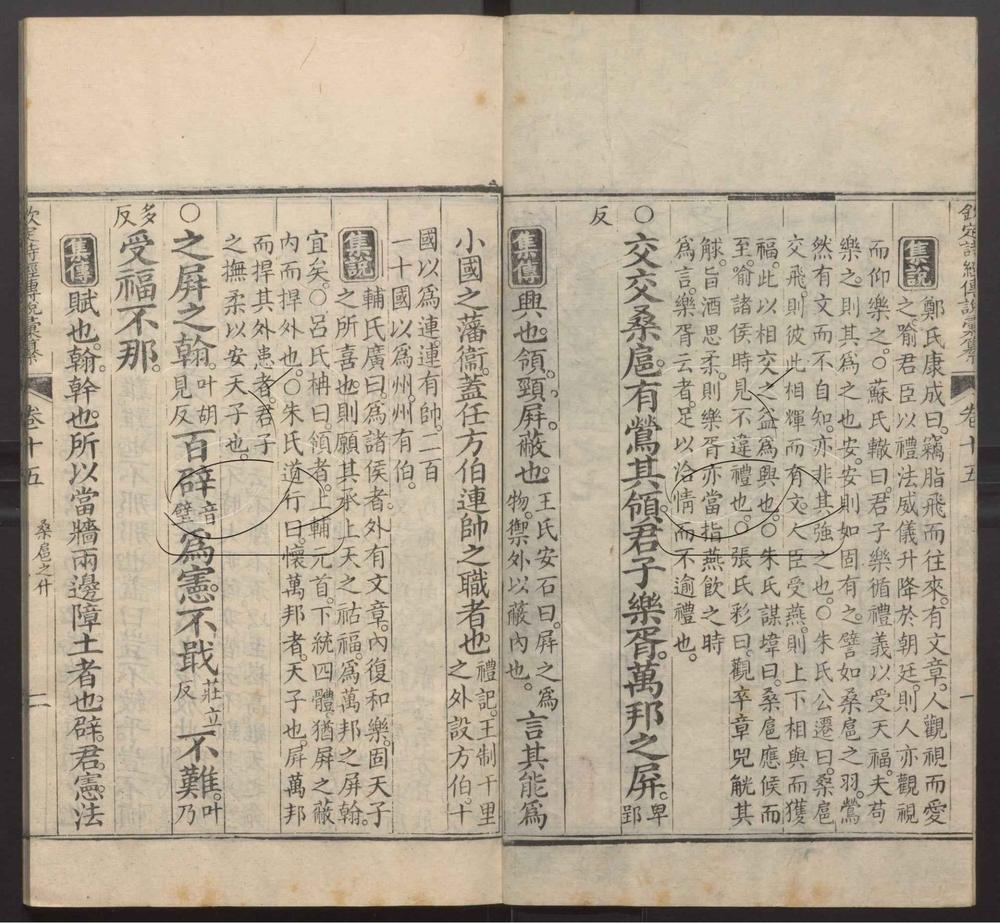 欽定詩經傳說彙纂 卷十五 一
集說 鄭氏康成曰。竊脂飛而往來。有文章。人觀視而愛
之。喻君臣以禮法威儀升降於朝廷。則人亦觀視
而仰樂之。○蘇氏轍曰。君子樂循禮義以受天福。夫苟
樂之。則其為之也安。安則如固有之。譬如桑扈之羽。鶯
然有文而不自知。亦非其強之也。○朱氏公遷曰。桑扈
交飛。則彼此相輝而有文。人臣受燕。則上下相與而獲
福。此以相交之益為興也。○朱氏謀㙔曰。桑扈應候而
至。喻諸侯時見不違禮也。○張氏彩曰。觀卒章兕觥其
觩。旨酒思柔。則樂胥亦當指燕飲之時
為言。樂胥云者。足以洽情而不逾禮也。
○交交桑扈。有鶯其領。君子樂胥。萬邦之屏。卑郢
反
集傳 興也。領。頸。屏。蔽也。王氏安石曰。屏之為物。禦外以蔽內也。言其能為
小國之藩衞。蓋任方伯連帥之職者也。禮記。王制千里之外設方伯。十
國以為連。連有帥。二百
一十國以為州。州有伯。
集說 輔氏廣曰。為諸侯者。外有文章。內復和樂。固天子
之所喜也。則願其承上天之祜福。為萬邦之屏翰。
宜矣。○呂氏柟曰。領者。上輔元首。下統四體。猶屏之蔽
內而捍外也。○朱氏道行曰。懷萬邦者。天子也。屏萬邦
而捍其外患者。君子
之撫柔以安天子也。
○之屏之翰。叶胡見反百辟音璧為憲。不戢莊立反不難。叶乃
多反受福不那。
集傳 賦也。翰。幹也。所以當牆兩邊障土者也。辟。君。憲。法
欽定詩經傳說彙纂 卷十五 桑扈之什 二